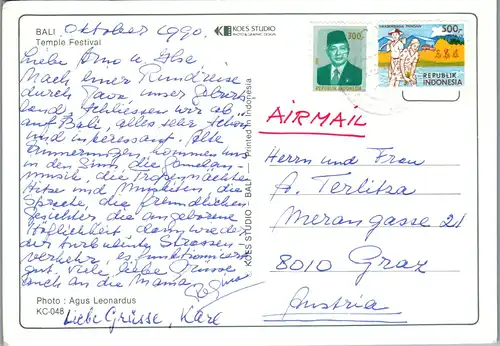 BALI Oktober 1990.
Temple Festival
KOES STUDIO
PHOTO & GRAPHIC DESIGN
Liebe Arno u. Ilse
Nach einer Rundreise
durch Java unser Geburts
land, schliessen wir ab
auf Bali, alles sehr schön
und interessant. Alte
Erinnerungen kommen uns
in den Sinn, die Gamelan-
musik, die Tropennächte
Hitze und Muskiten, die
Sprache, die freundlichen
Gesichter die angeborene
Höflichkeit dann wieder
der turbulente Strassen-
verkehr, es funktioniert
gut. Viele liebe Grüsse
auch an die Mama
Regina
Liebe Grüsse, Karl
Photo : Agus Leonardus
KC-048
KOES STUDIO BALI Printed in Indonesia
300,-
REPUBLIK INDONESIA
500,-
REPUBLIK
INDONESIA
AIRMAIL
Herrn und Frau
A. Terlitza
Merangasse 21
8010 Graz
Austria